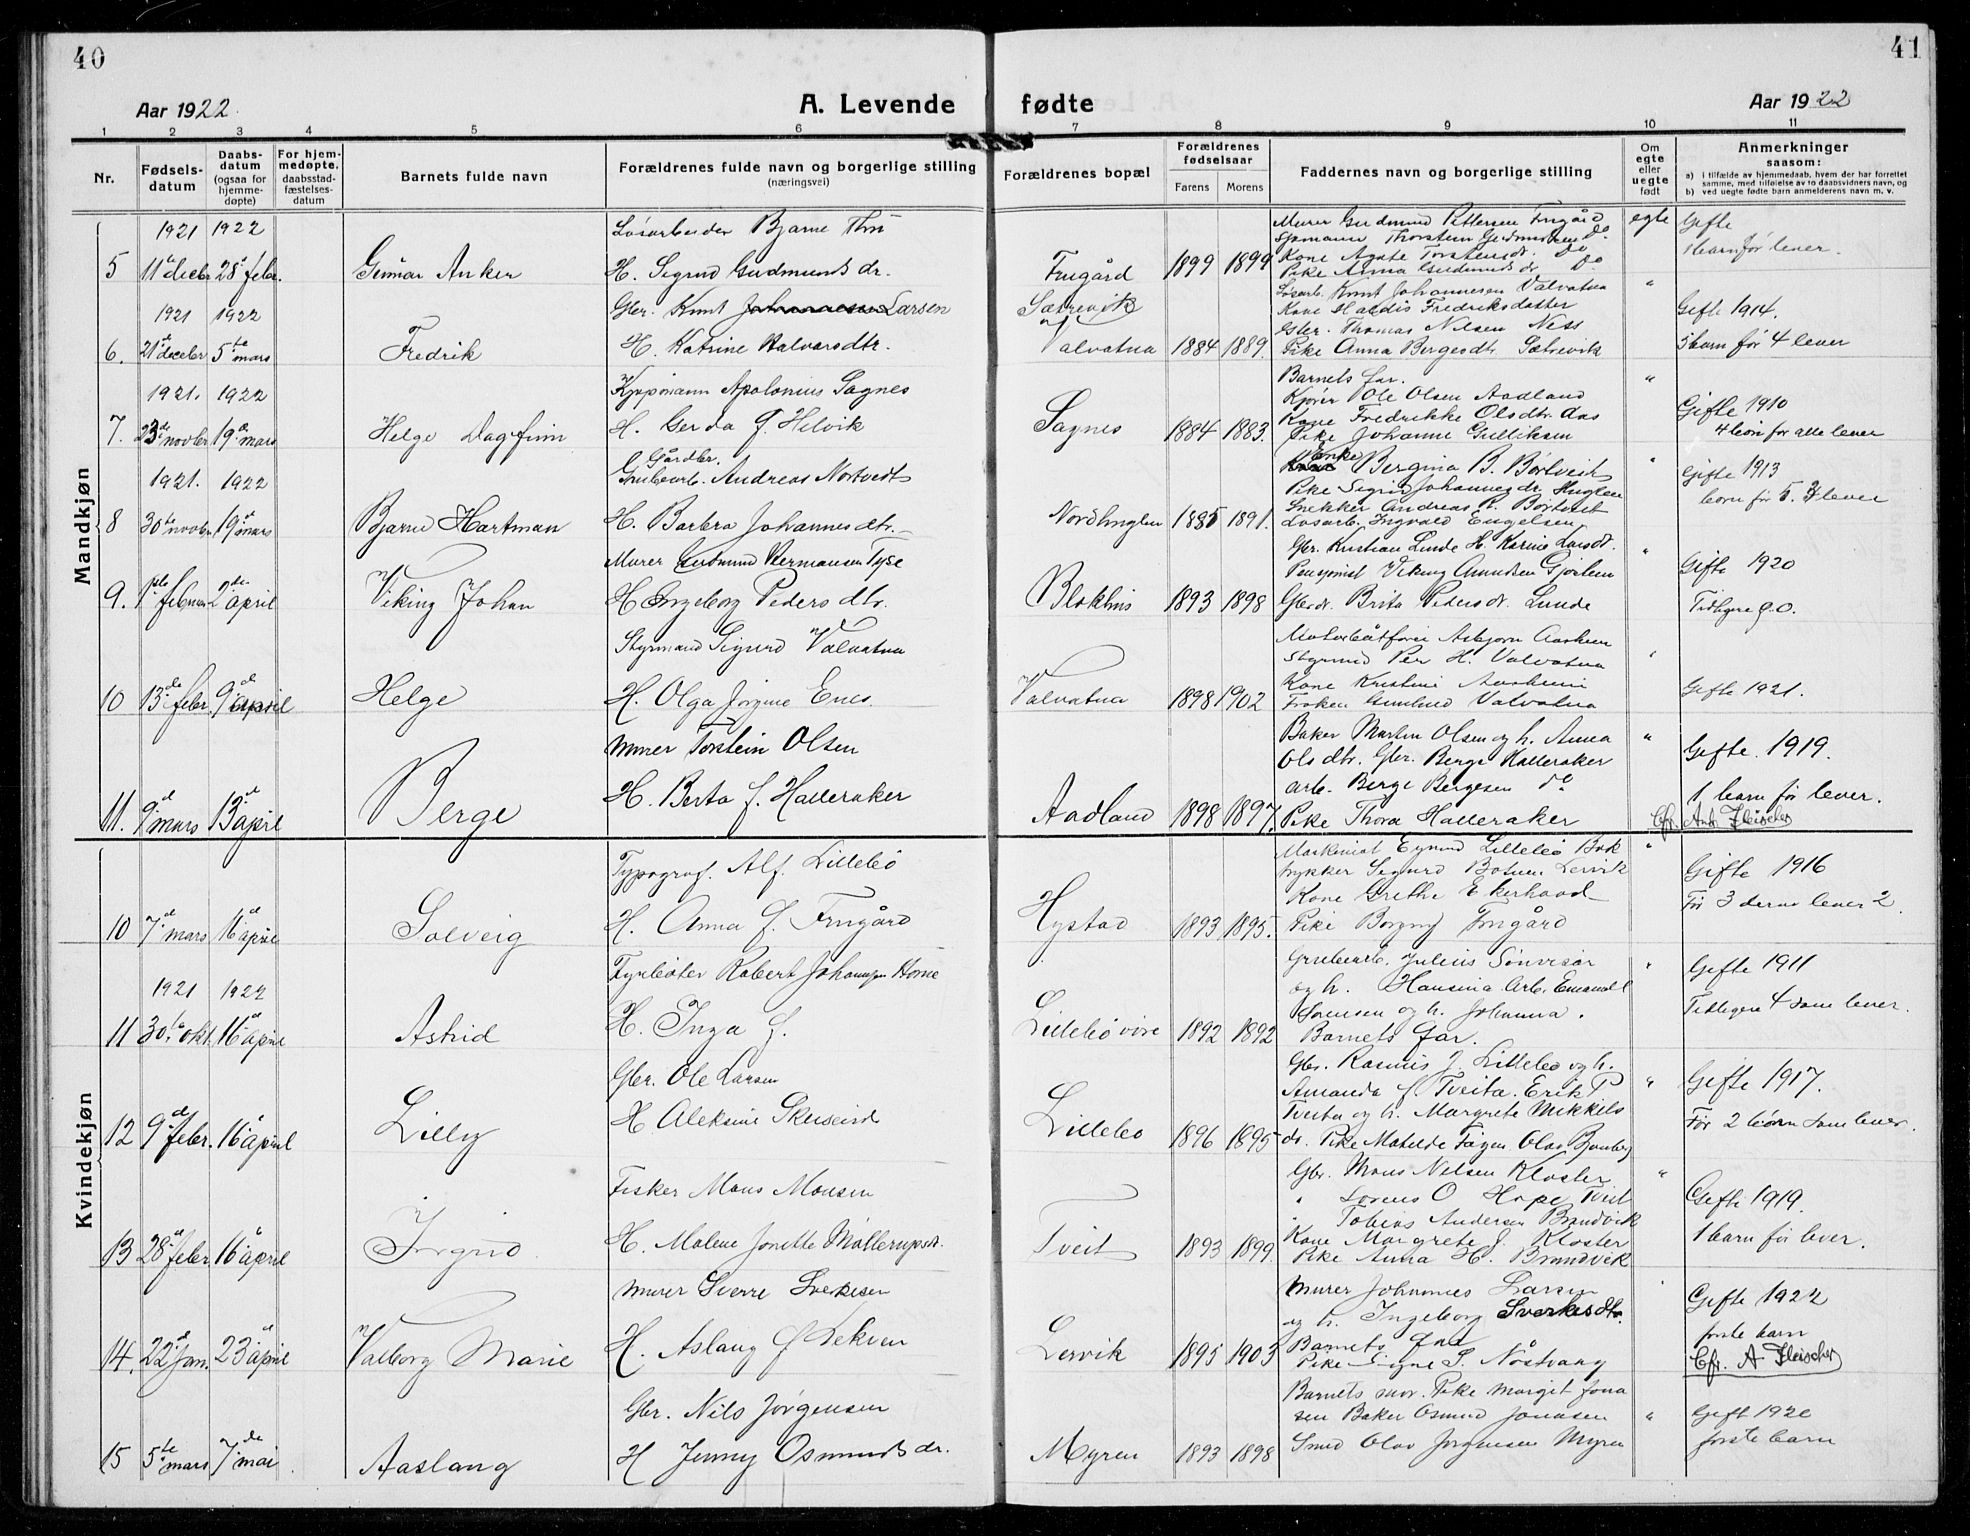 40
41
Aar 1922
A. Levende fødte
Aar 1922
1 2 3 4 5 6 7 8 9 10 11
Nr.
Fødsels-
datum
Daabs-
datum
(ogsaa for
hjemme-
døpte)
For hjem-
medøpte.
daabsstad-
fæstelses-
datum
Barnets fulde navn
Forældrenes fulde navn og borgerlige stilling
(næringsvei)
Forældrenes bopæl
Forældrenes
fødselsaar
Farens Morens
Faddernes navn og borgerlige stilling
Om
egte
eller
uegte
født
Anmerkninger
saasom:
a) i tilfælde av hjemmedaab, hvem der har forrettet
samme, med tilføielse av to daabsvidners navn, og
b) ved uegte fødte barn anmelderens navn m. v.
Mandkjøn
1921 1922
5 11te decbr 28de febr.
Gunnar Anker
Løsarbeider Bjarne
H. Sigrid Gudmundsdr.
Frugård
1899 1899
Murer Gudmund Pettersen Frugård
Sjømann Thorstein Gudmundsen Do
Kone Agate Torsteinsdr. Do
Pike Anna Gudmundsdr Do
egte
Gifte
1 barn før lever.
1921 1922
6. 21de decebr 5te mars
Fredrik
Gbr. Knut Johannesen Larsen
H. Katrine Halvarsdtr.
Sætrevik
Valvatna
1884 1889.
Løsarb. Knut Johannesen Valvatna
Kone Haldis Fredriksdatter
Gbr. Thomas Nilsen Ness
Pike Anna Bergesdtr Sætrevik
"
Gifte 1914.
5 barn før 4 lever
1921. 1922
7. 23de novbr 19de mars
Helge Dagfinn
Kjøpmann Apolonius Sagnes
H. Gerda f. Helvik
Sagnes
1884 1883.
Barnets far.
Kjører Ole Olsen Aadland
Kone Fredrikke Olsdtr. Aas
Pike Johanne Gulliksen
"
Gifte 1910
4 børn før alle lever
1921. 1922
8 30te novbr 19de mars
Bjarne Hartman
Gårdbr.
Grubearb. Andreas Nortvedt
H. Barbra Johannesdtr.
Nordhuglen
1885 1891.
Enke Bergina B. Børtveit
Pike Sigrid Johannesdr. Huglen
Snekker Andreas P. Børtveit
Løsarb. Ingvald Engelsen
"
Gifte 1913
børn før 5. 3 lever
9. 1ste februar 2den april
Viking Johan
Murer Gudmund Hermansen Tyse
H Ingeborg Pedersdtr.
Blokhus
1893 1898
Gbr. Kristian Lunde H. Karine Larsdr.
Pensjonist Viking Amundsen
Gbrdr. Brita Pedersdr. Lunde
"
Gifte 1920
Tidligere 0.0.
10 13de febr. 9de april
Helge
Styrmand Sigurd Valvatna
H. Olga Jørgine Enes.
Valvatna
1898 1902
Motorbåtfører Asbjørn Aarheim
Styrmd Per H. Valvatna
Kone Kristine Aarheim
Frøken Gunhild Valvatna
"
Gifte 1921.
11. 9de mars 13de april
Berge
Murer Torstein Olsen
H. Berta f. Halleraker
Aadland
1898 1897.
Baker Martin Olsen og h. Anna
Olsdtr. Gbr. Berge Halleraker
Arb. Berge Bergesen do
Pike Thora Halleraker
"
Gifte. 1919.
1 barn før lever.
Cfr. Ant. Fleischer
Kvindekjøn
10 7de mars 16de april
Solveig
Typograf. Alf. Lillebø
H. Anna f. Frugård
Hystad
1893 1895.
Maskinist Eyvind Lillebø Bok
trykker Sigurd Lervik
Kone Grethe Ekerhaod
Pike Borgny Frugård
"
Gifte 1916
Før 3 derav lever 2.
1921 1922
11 30te okt. 16de april
Astrid
Fyrbøter Robert Johansen Horne
H. Inga f.
Lillebø øvre
1892 1892
Grubearb. Julius Sønvisør
og h. Hansina. Arb. Emanuel
og h. Johanna.
Barnets far.
"
Gifte 1911
Tidligere 4 som lever.
12 9de febr. 16de april
Lilly
Gbr. Ole Larsen
H Aleksine Skuseid
Lillebø
1896 1895
Gbr. Rasmus J. Lillebø og h.
Amanda f Tveita. Erik P
Tveita og h. Margrete Mikkels
dr. Pike Matilde Fagen Olav
"
Gifte 1917.
Før 2 børn som lever.
13 28de febr 16de april
Ingrid
Fisker Mons Monsen
H. Malene Jonette Møllerupsdt.
Tveit
1893 1899.
Gbr. Mons Nelsen Kloster
" Sørens O Hope Tveit
" Tobias Andersen Brandvik
Kone Margrete J. Kloster
Pike Anna H. Brandvik
"
Gifte 1919.
1 barn før lever.
14. 22de jan. 23de april
Valborg Marie
Murer Sverre Sverkesen
H. Aslaug f Lekven
Lervik
1895 1903
Murer Johannes Larsen
og h. Ingeborg Sverkesdtr.
Barnets far
Pike Signe S. Nøstvang
"
Gifte 1922
første barn
Cfr. A. Fleischer
15 5te mars 7de mai
Aaslaug
Gbr. Nils Jørgensen
H Jenny Osmundsdr.
Myren
1893 1898
Barnets mor. Pike Margit Jona
sen Baker Osmund Jonasen
Smed Olav Jørgensen Myren
"
Gift 1920
første barn